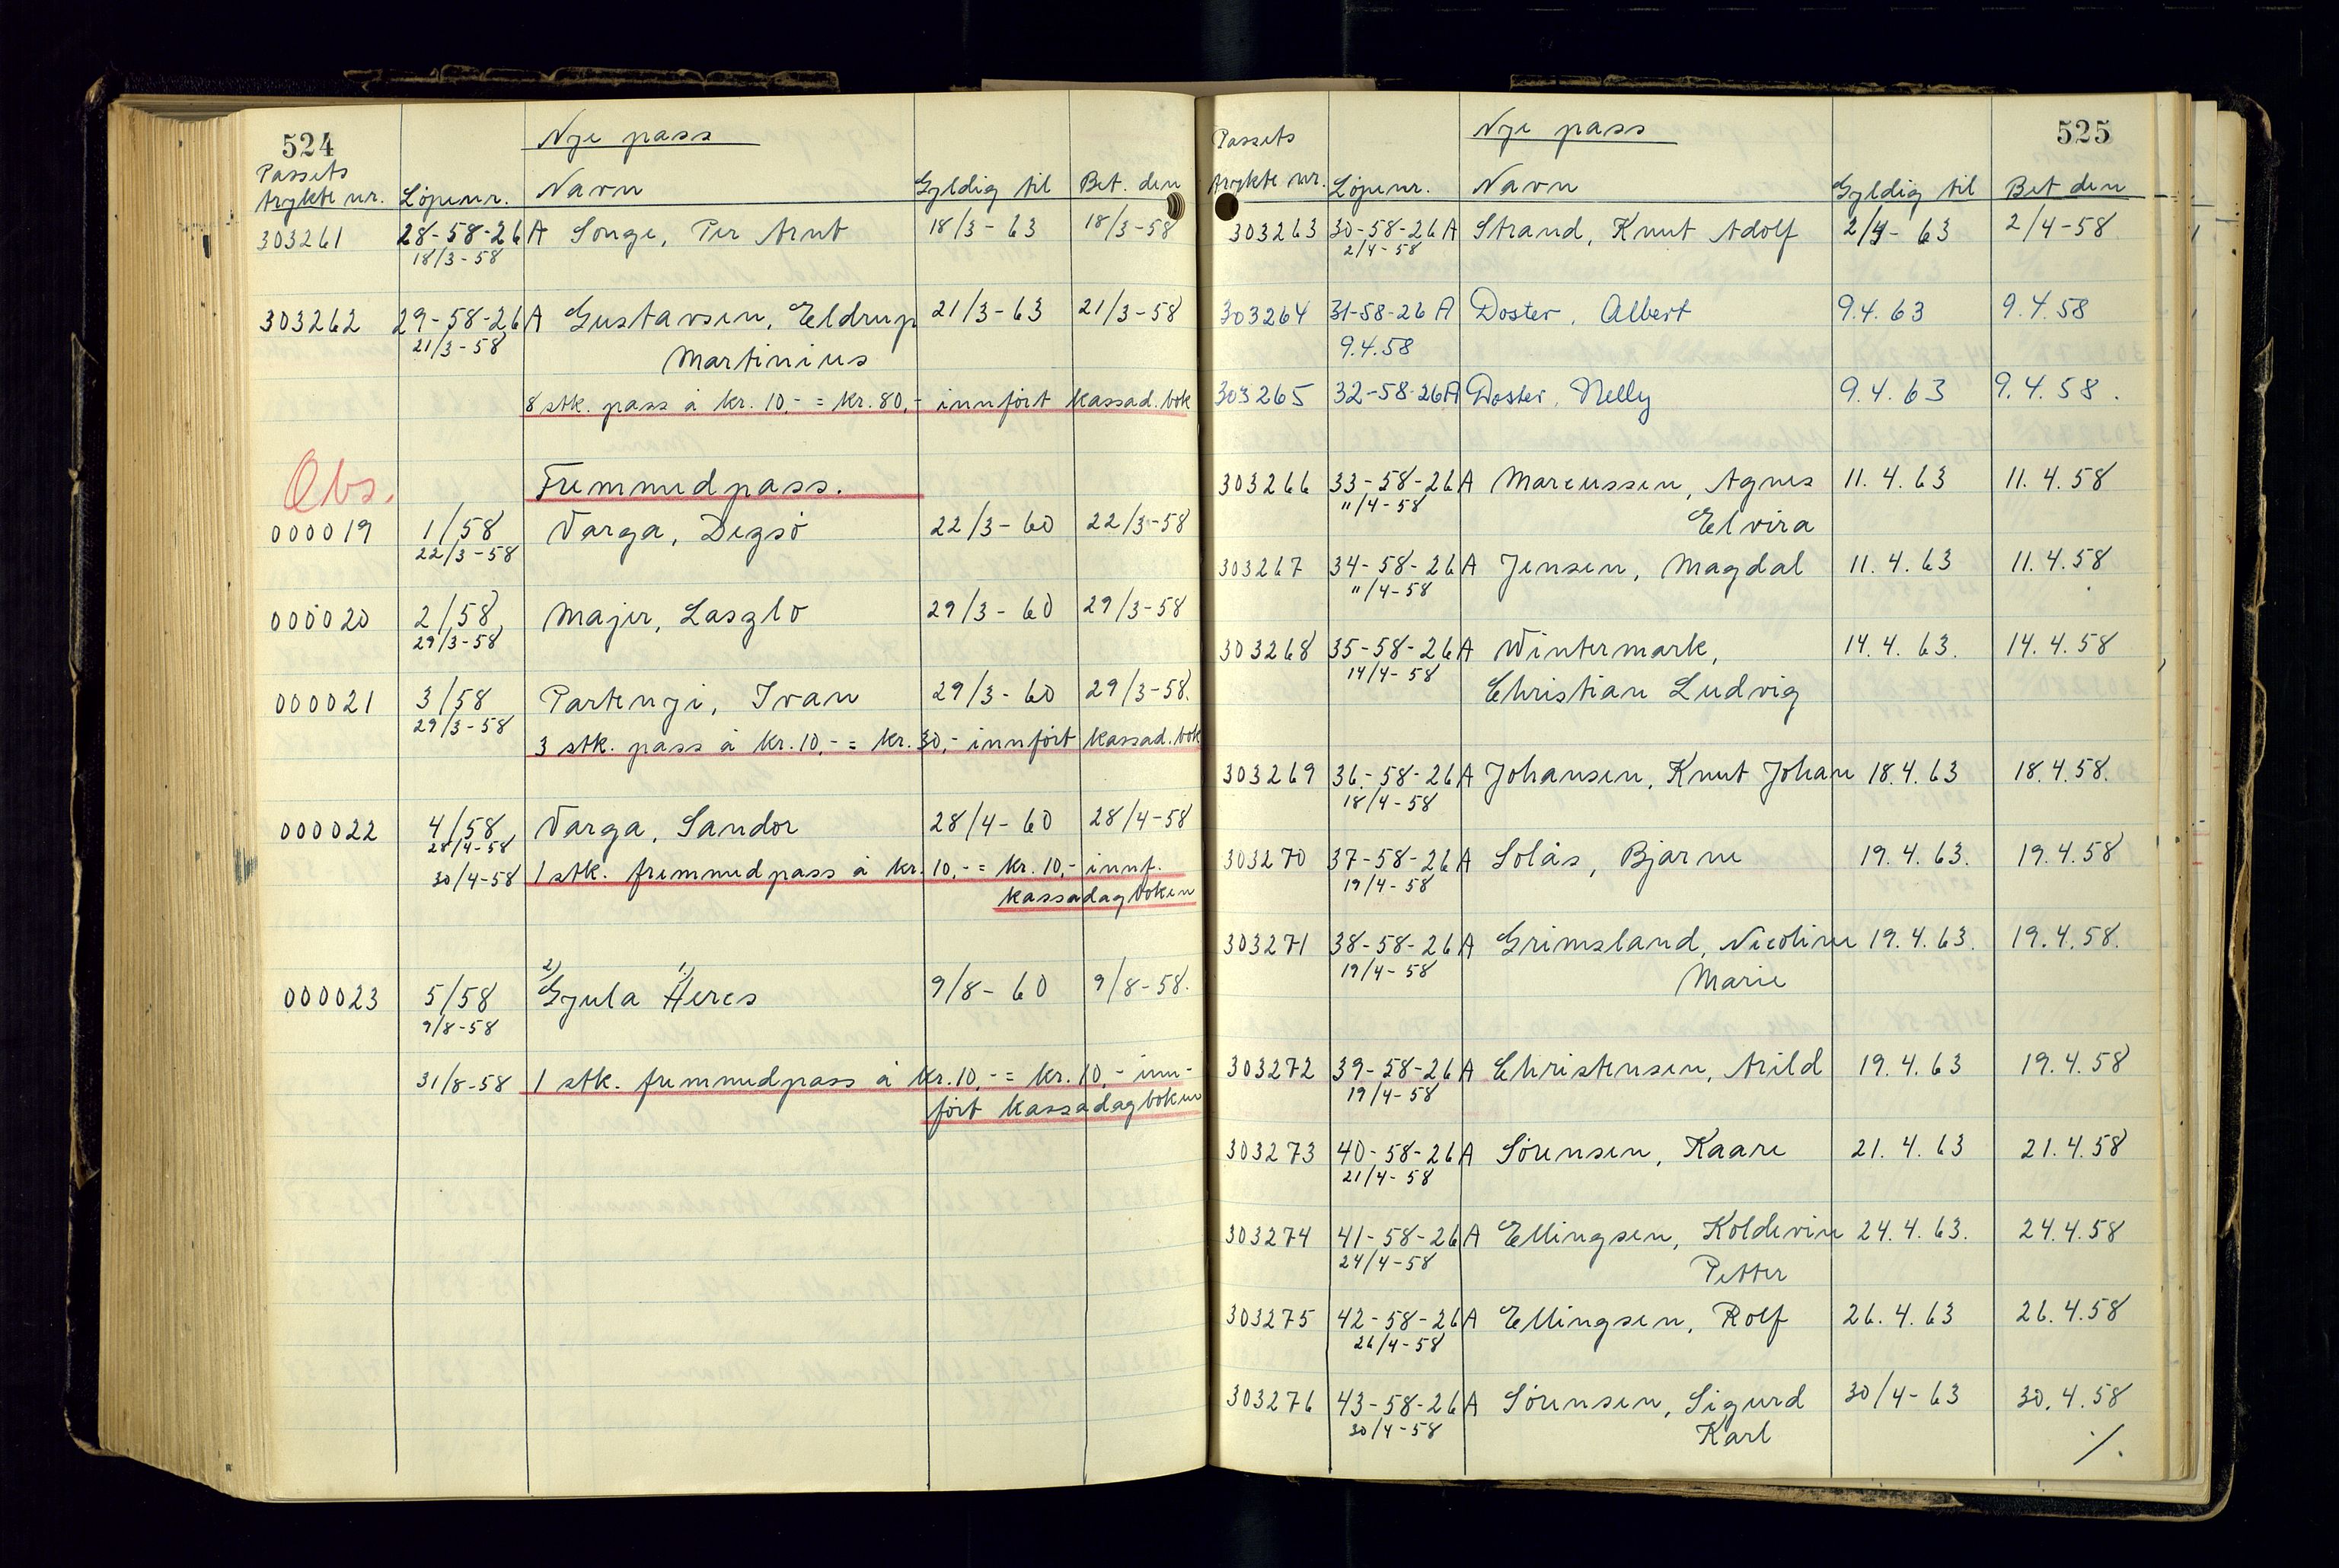 524
Nye pass
Passets
trykte nr. Löpenr. Navn Gyldig til Bet. den
303261 28-58-26A Songe, Per Arnt 18/3-63 18/3-58
18/3-58
303262 29-58-26A Gustavsen, Eldrup 21/3-63 21/3-58
21/3-58 Martinius
8 stk. pass à kr. 10,- = kr. 80,- innfört kassad.bok
Obs. Fremmedpass.
000019 1/58 Varga, Dezsö 22/3-60 22/3-58
22/3-58
000020 2/58 Majer, Laszlo 29/3-60 29/3-58
29/3-58
000021 3/58 Partenyi, Ivan 29/3-60 29/3-58.
29/3-58
3 stk. pass à kr.10,- = kr.30,- innfört kassad.bok
000022 4/58 Varga, Sandor 28/4-60 28/4-58
28/4-58
30/4-58 1 stk. fremmedpass à kr. 10,- = kr. 10,- innf.
kassadagboken
2) 1)
000023 5/58 Gyula Heres 9/8-60 9/8-58.
9/8-58
31/8-58 1 stk. fremmedpass à kr.10,- = kr. 10,- inn-
fört kassadagboken
525
Nye pass
Passets
trykte nr. Löpenr. Navn Gyldig til Bet den
303263 30-58-26A Strand, Knut Adolf 2/4-63 2/4-58
2/4-58
303264 31-58-26A Doster, Albert 9.4.63 9.4.58
9.4.58
303265 32-58-26A Doster, Nelly 9.4.63 9.4.58.
303266 33-58-26A Marcussen, Agnes 11.4.63 11.4.58
11/4-58 Elvira
303267 34-58-26A Jensen, Magdal 11.4.63 11.4.58
11/4-58
303268 35-58-26A Wintermark, 14.4.63. 14.4.58
14/4-58 Christian Ludvig
303269 36-58-26A Johansen, Knut Johan 18.4.63 18.4.58.
18/4-58
303270 37-58-26A Solås, Bjarne 19.4.63. 19.4.58
19/4-58
303271 38-58-26A Grimsland, Nicoline 19.4.63. 19.4.58.
19/4-58 Marie
303272 39-58-26A Christensen, Arild 19.4.63 19.4.58
19/4-58
303273 40-58-26A Sörensen, Kaare 21.4.63 21.4.58
21/4-58
303274 41-58-26A Ellingsen, Koldevin 24.4.63. 24.4.58
24/4-58 Petter
303275 42-58-26A Ellingsen, Rolf 26.4.63 26.4.58
26/4-58
303276 43-58-26A Sörensen, Sigurd 30/4-63 30.4.58
30/4-58 Karl
./.